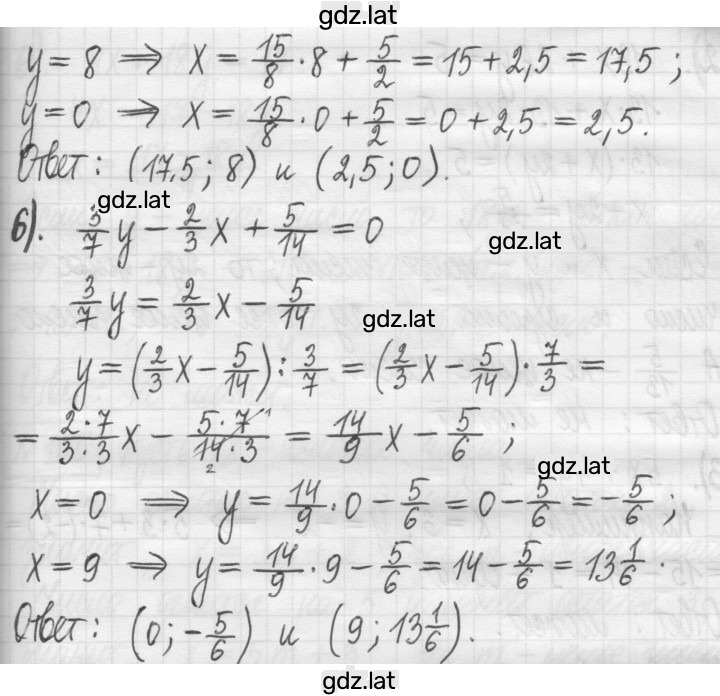 gdz.lat
y = 8 ⟹ x = 15/8 · 8 + 5/2 = 15 + 2,5 = 17,5 ;
y = 0 ⟹ x = 15/8 · 0 + 5/2 = 0 + 2,5 = 2,5.
Ответ: (17,5; 8) и (2,5; 0).
gdz.lat
6). 3/7 y − 2/3 x + 5/14 = 0
gdz.lat
3/7 y = 2/3 x − 5/14
gdz.lat
y = (2/3 x − 5/14) : 3/7 = (2/3 x − 5/14) · 7/3 =
= 2·7/3·3 x − 5·7 1/14 2·3 = 14/9 x − 5/6 ;
gdz.lat
x = 0 ⟹ y = 14/9 · 0 − 5/6 = 0 − 5/6 = − 5/6 ;
x = 9 ⟹ y = 14/9 · 9 − 5/6 = 14 − 5/6 = 13 1/6 .
Ответ: (0; − 5/6) и (9; 13 1/6).
gdz.lat